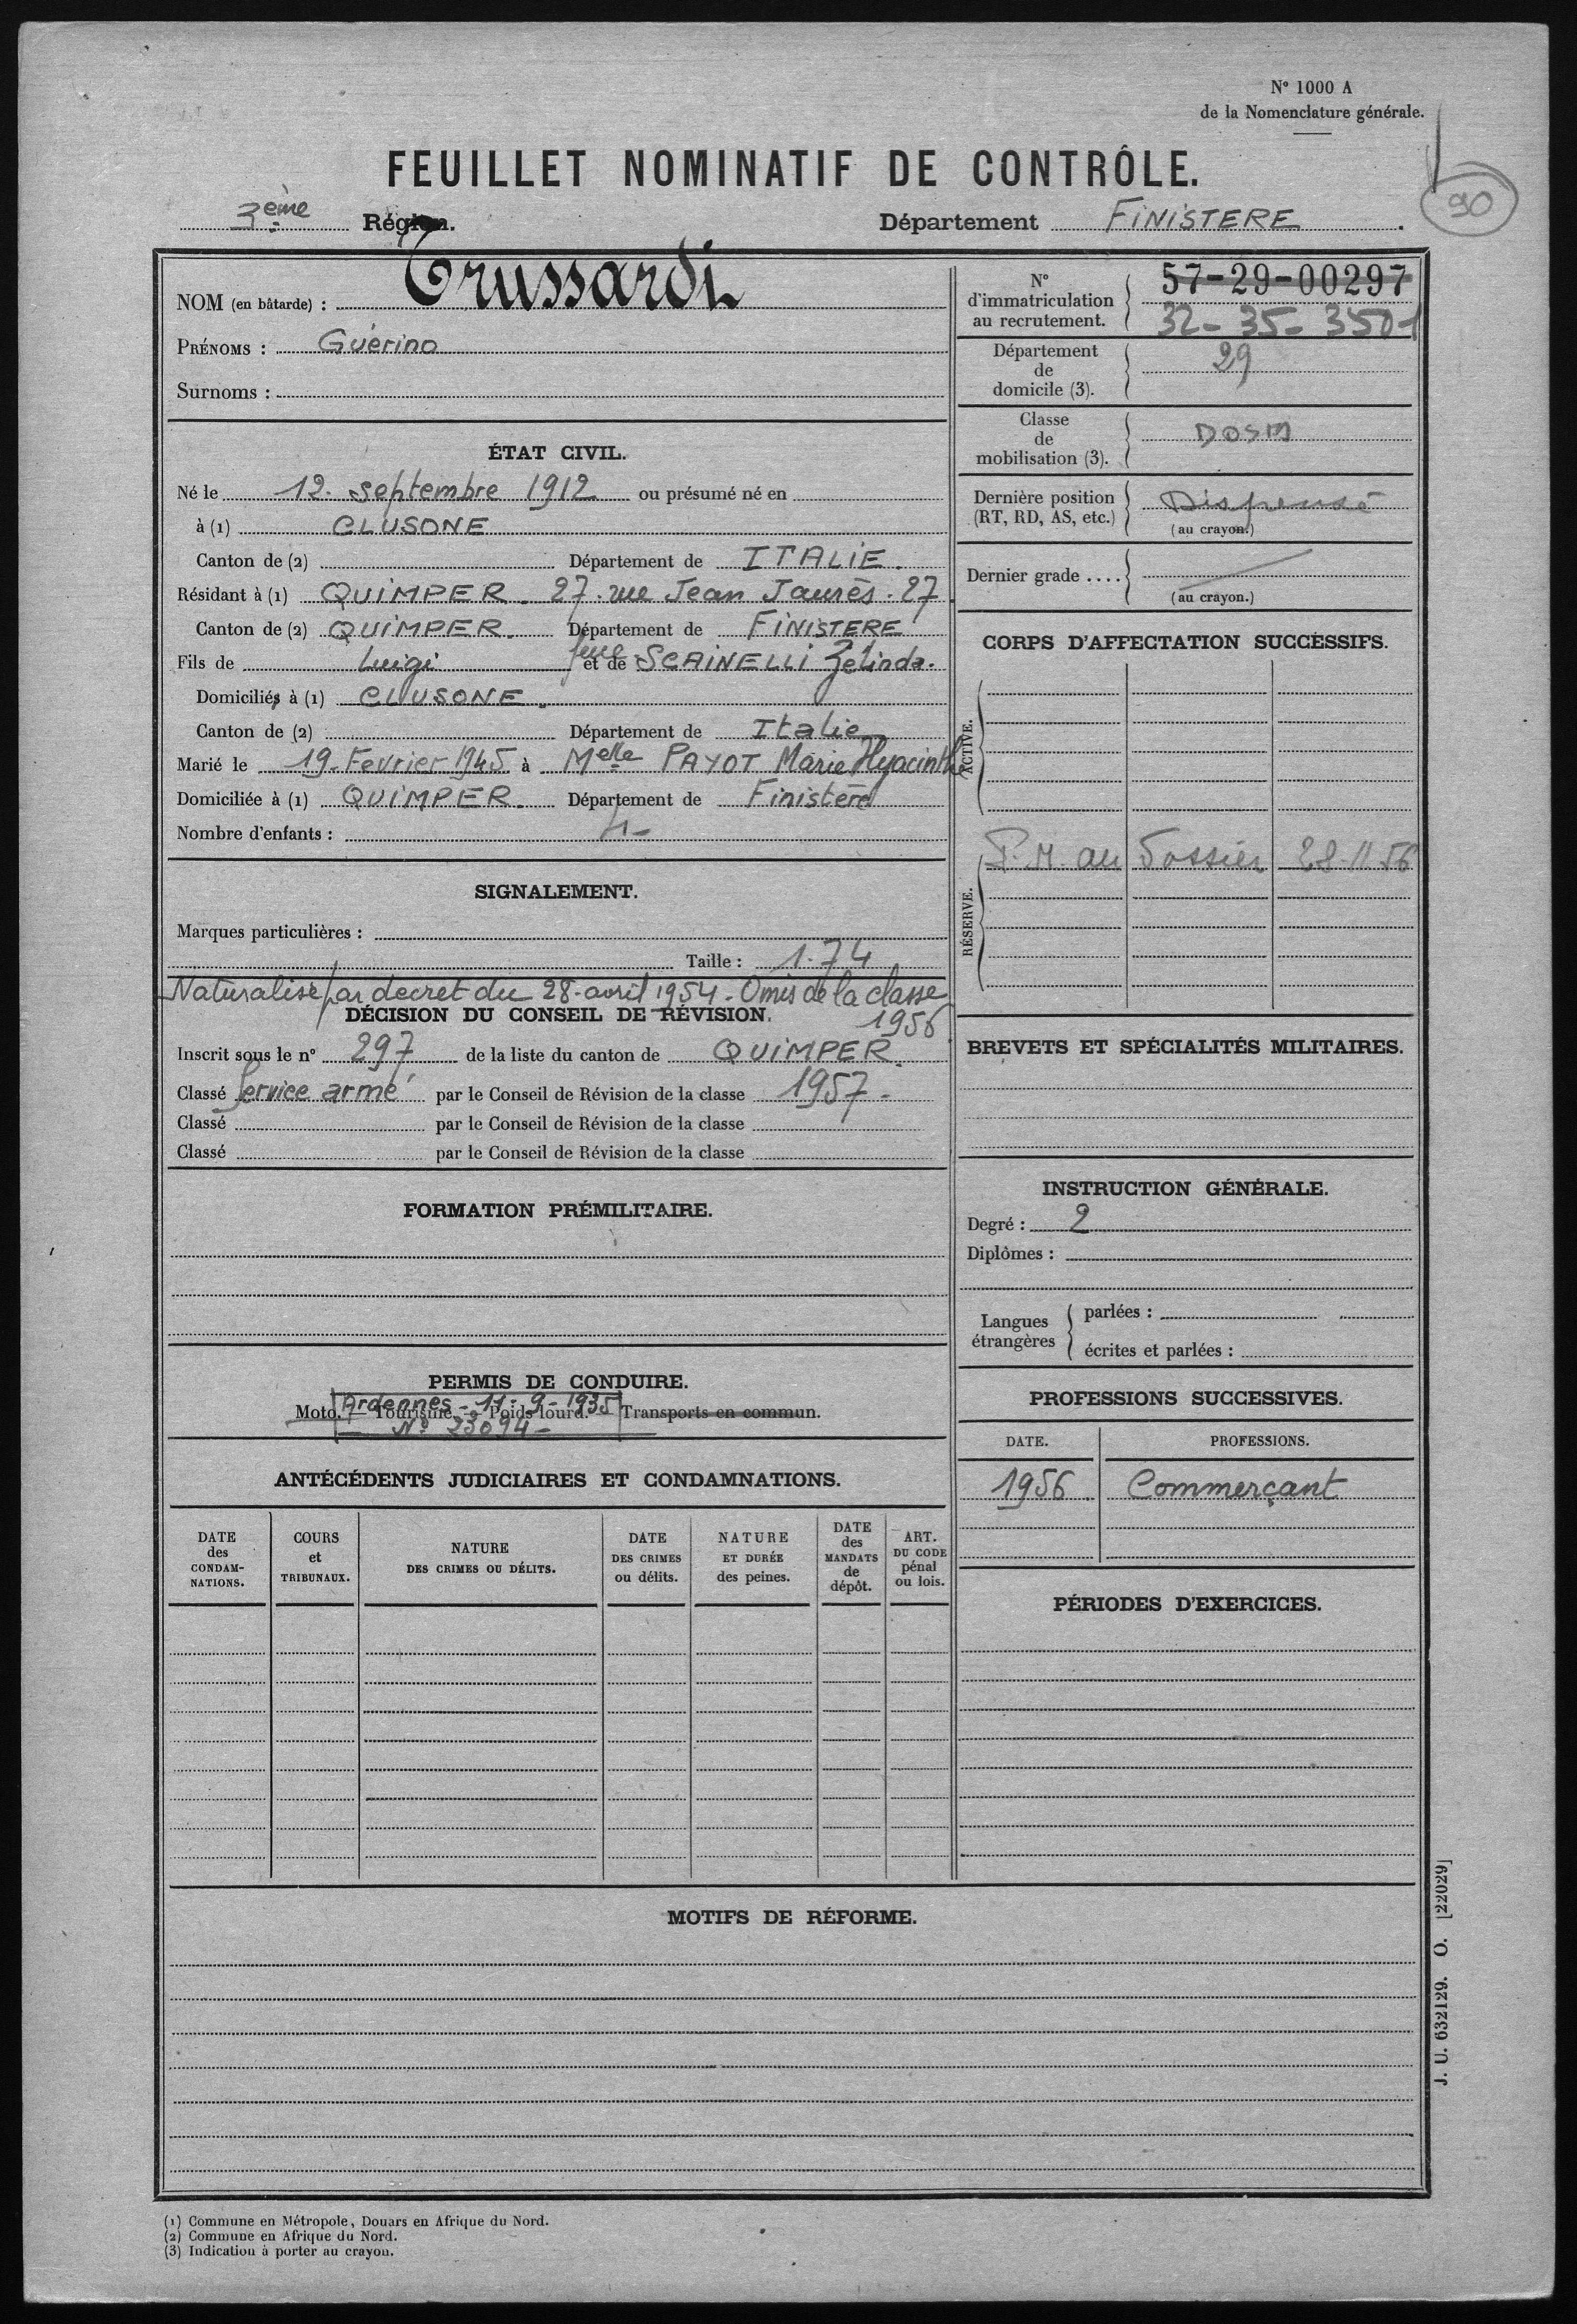 N° 1000 A
de la Nomenclature générale.
FEUILLET NOMINATIF DE CONTRÔLE.
3ème Région. Département FINISTERE.
90
NOM (en bâtarde) : Trussardi
PRÉNOMS : Guérino
Surnoms :
ÉTAT CIVIL.
Né le 12. Septembre 1912 ou présumé né en
à (1) CLUSONE
Canton de (2) Département de ITALIE.
Résidant à (1) QUIMPER. 27. rue Jean Jaurès. 27
Canton de (2) QUIMPER. Département de FINISTERE
Fils de Luigi et de SCAINELLI Zelinda.
Domiciliés à (1) CLUSONE.
Canton de (2) Département de Italie
Marié le 19. Fevrier 1945 à Melle PAYOT Marie Hyacinthe
Domiciliée à (1) QUIMPER. Département de Finistère
Nombre d'enfants : 4-
SIGNALEMENT.
Marques particulières :
Taille : 1.74
Naturalisé par decret du 28. avril 1954 - Omis de la classe
1956
DÉCISION DU CONSEIL DE RÉVISION.
Inscrit sous le n° 297 de la liste du canton de QUIMPER.
Classé Service armé par le Conseil de Révision de la classe 1957-
Classé par le Conseil de Révision de la classe
Classé par le Conseil de Révision de la classe
FORMATION PRÉMILITAIRE.
PERMIS DE CONDUIRE.
Ardennes - 11-9-1935
Moto. — Tourisme. — Poids lourd. Transports en commun.
N° 23094-
ANTÉCÉDENTS JUDICIAIRES ET CONDAMNATIONS.
DATE des CONDAM-NATIONS.
COURS et TRIBUNAUX.
NATURE DES CRIMES OU DÉLITS.
DATE DES CRIMES ou délits.
NATURE ET DURÉE des peines.
DATE des MANDATS de dépôt.
ART. DU CODE pénal ou lois.
N° d'immatriculation au recrutement. 57-29-00297
32-35-3501
Département de domicile (3). 29
Classe de mobilisation (3). DOSM
Dernière position (RT, RD, AS, etc.) Dispensé
(au crayon.)
Dernier grade ....
(au crayon.)
CORPS D'AFFECTATION SUCCESSIFS.
ACTIVE.
RÉSERVE.
P.M. au Dossier 28-11-56
BREVETS ET SPÉCIALITÉS MILITAIRES.
INSTRUCTION GÉNÉRALE.
Degré : 2
Diplômes :
Langues étrangères
parlées :
écrites et parlées :
PROFESSIONS SUCCESSIVES.
DATE. PROFESSIONS.
1956 Commerçant
PÉRIODES D'EXERCICES.
MOTIFS DE RÉFORME.
J. U. 632129. O. [22029]
(1) Commune en Métropole, Douars en Afrique du Nord.
(2) Commune en Afrique du Nord.
(3) Indication à porter au crayon.